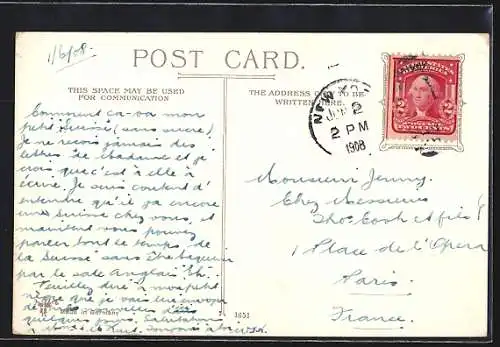 1/6/08
POST CARD.
THIS SPACE MAY BE USED
FOR COMMUNICATION
THE ADDRESS TO BE
WRITTEN HERE.
NEW YO
JUN 2
2 PM
1908
2 2
POSTAGE
TWO CENTS
Comment ca-va mon
petit Suisse (sans sucre).
Je ne recois jamais des
lettres de madame et je
crois que c'est à elle à
écrire. Je suis content d'
entendre qu'il y a encore
une Suisse chez vous, et
maintent vous pouvez
parler tout le temps de
la Suisse sans être
par le sale Anglais Eh!
Veuillez dire à mon petit
que je vais lui envoyer
des nouvelles d'ici
quelques jours. Salutations
à vous
Monsieur Jenny.
Chez Messieurs
Thos. Cook et fils
1 Place de l'Opera
Paris.
France.
Made in Germany
3651